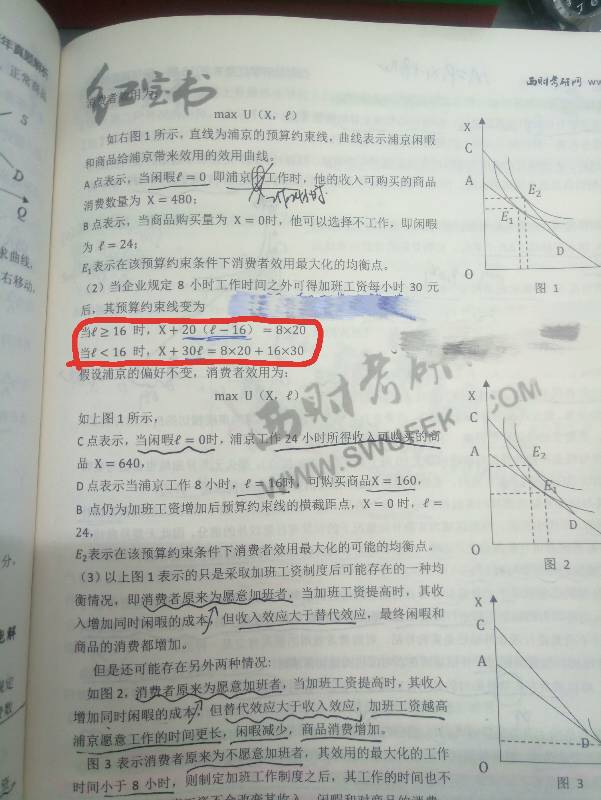 年真题解析
正常商品
S
D
Q
求曲线,
右移动,
红宝书
西财考研网 ww
max U（X，ℓ）
如右图 1 所示，直线为浦京的预算约束线，曲线表示浦京闲暇
和商品给浦京带来效用的效用曲线。
A 点表示，当闲暇ℓ = 0 即浦京 工作时，他的收入可购买的商品
消费数量为 X = 480；
B 点表示，当商品购买量为 X = 0时，他可以选择不工作，即闲暇
为 ℓ = 24；
E₁表示在该预算约束条件下消费者效用最大化的均衡点。
（2）当企业规定 8 小时工作时间之外可得加班工资每小时 30 元
后，其预算约束线变为
当ℓ ≥ 16 时，X + 20（ℓ − 16）= 8×20
当ℓ < 16 时，X + 30ℓ = 8×20 + 16×30
假设浦京的偏好不变，消费者效用为：
max U（X，ℓ）
如上图 1 所示，
C 点表示，当闲暇ℓ = 0时，浦京工作 24 小时所得收入可购买的商
品 X = 640，
D 点表示当浦京工作 8 小时，ℓ = 16时，可购买商品X = 160，
B 点仍为加班工资增加后预算约束线的横截距点，X = 0 时，ℓ =
24，
E₂表示在该预算约束条件下消费者效用最大化的可能的均衡点。
（3）以上图 1 表示的只是采取加班工资制度后可能存在的一种均
衡情况，即消费者原来为愿意加班者，当加班工资提高时，其收
入增加同时闲暇的成本，但收入效应大于替代效应，最终闲暇和
商品的消费都增加。
但是还可能存在另外两种情况：
如图 2，消费者原来为愿意加班者，当加班工资提高时，其收入
增加同时闲暇的成本，但替代效应大于收入效应，加班工资越高
浦京愿意工作的时间更长，闲暇减少，商品消费增加。
图 3 表示消费者原来为不愿意加班者，其效用的最大化的工作
时间小于 8 小时，则制定加班工作制度之后，其工作的时间也不
X
C
A
E₂
E₁
D
O
图 1
X
C
A
E₂
E₁
D
O
图 2
X
C
A
D
O
图 3
西财考研
WWW.SWUFEKY.COM